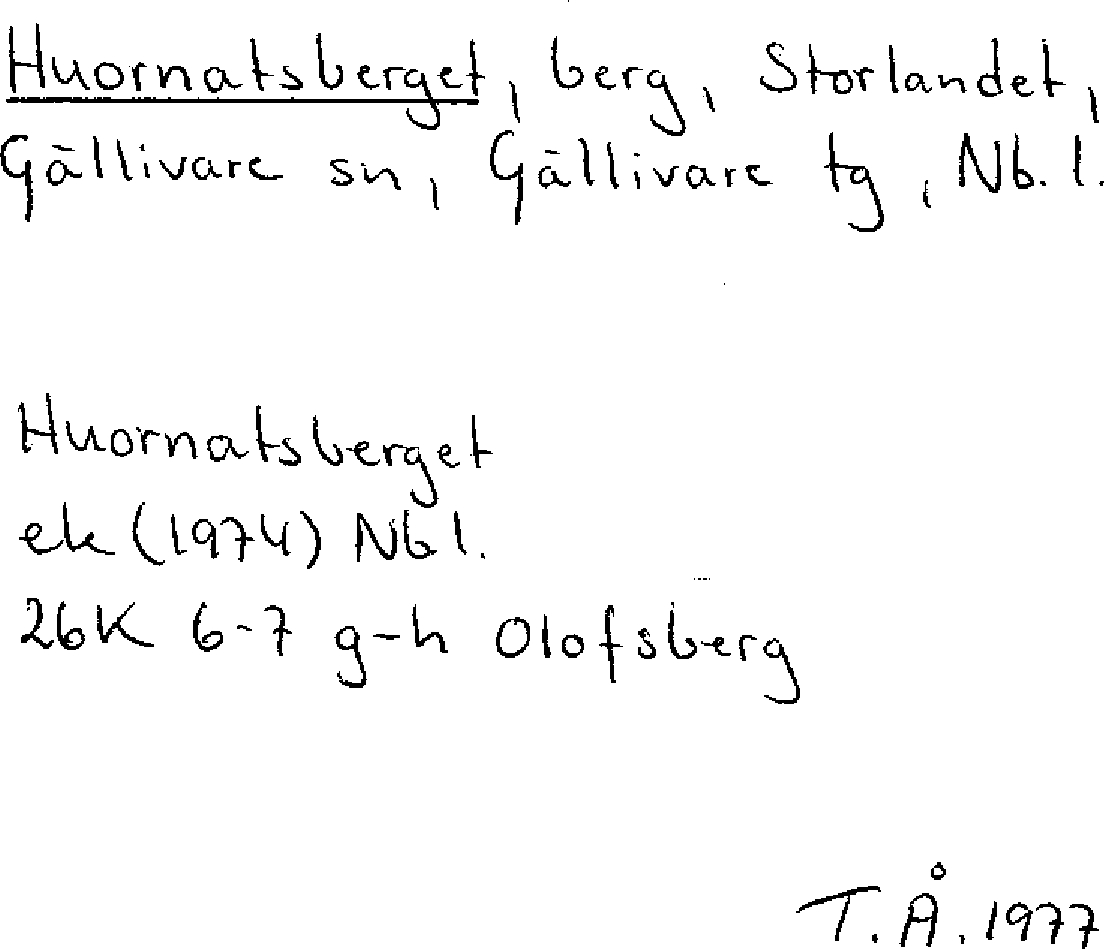 Huornatsberget, berg, Storlandet,
Gällivare sn, Gällivare tg, Nb. l.
Huornatsberget
ek (1974) Nb l.
26K 6-7 g-h Olofsberg
T. Å. 1977